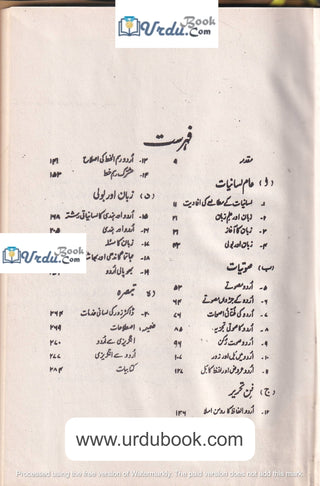 Urdu Book .Com
فہرست
مقدمہ ۹
(ا) عام لسانیات
۱۔ لسانیات کے مطالعے کی افادیت ۱۱
۲۔ زبان اور علم زبان ۲۱
۳۔ زبان کا آغاز
۴۔ زبان اور بولی
(ب) صوتیات
۵۔ اردو صوتے ۵۳
۶۔ اردو کے جڑواں صوتے
۷۔
۸۔ اردو کا صوتی تجزیہ ۸۵
۹۔ اردو صوت رکن ۹۶
۱۰۔ اردو میں بل اور زور
۱۱۔ اردو عروض اور الفاظ کا بل
(ج) فن تحریر
۱۲۔ اردو الفاظ کا رومن املا
۱۳۔ اردو رسم الخط کی اصلاح
۱۴۔ مشترک رسم خط ۱۵۳
(د) زبان اور بولی
۱۵۔ اردو اور ہندی کا لسانیاتی رشتہ
۱۶۔ اردو اور ہندی ۲۰۵
زبان کا مسئلہ
مہاتما گاندھی اور
۱۹۔ بھوپالی اردو
تبصرہ
۲۰۔ ڈاکٹر زور کی لسانی خدمات
ضمیمہ: اصطلاحات ۲۶۹
انگریزی سے اردو ۲۷۰
اردو سے انگریزی ۲۷۷
کتابیات ۲۸۴
Urdu Book .Com
www.urdubook.com
Processed using the free version of Watermarkly. The paid version does not add this mark.